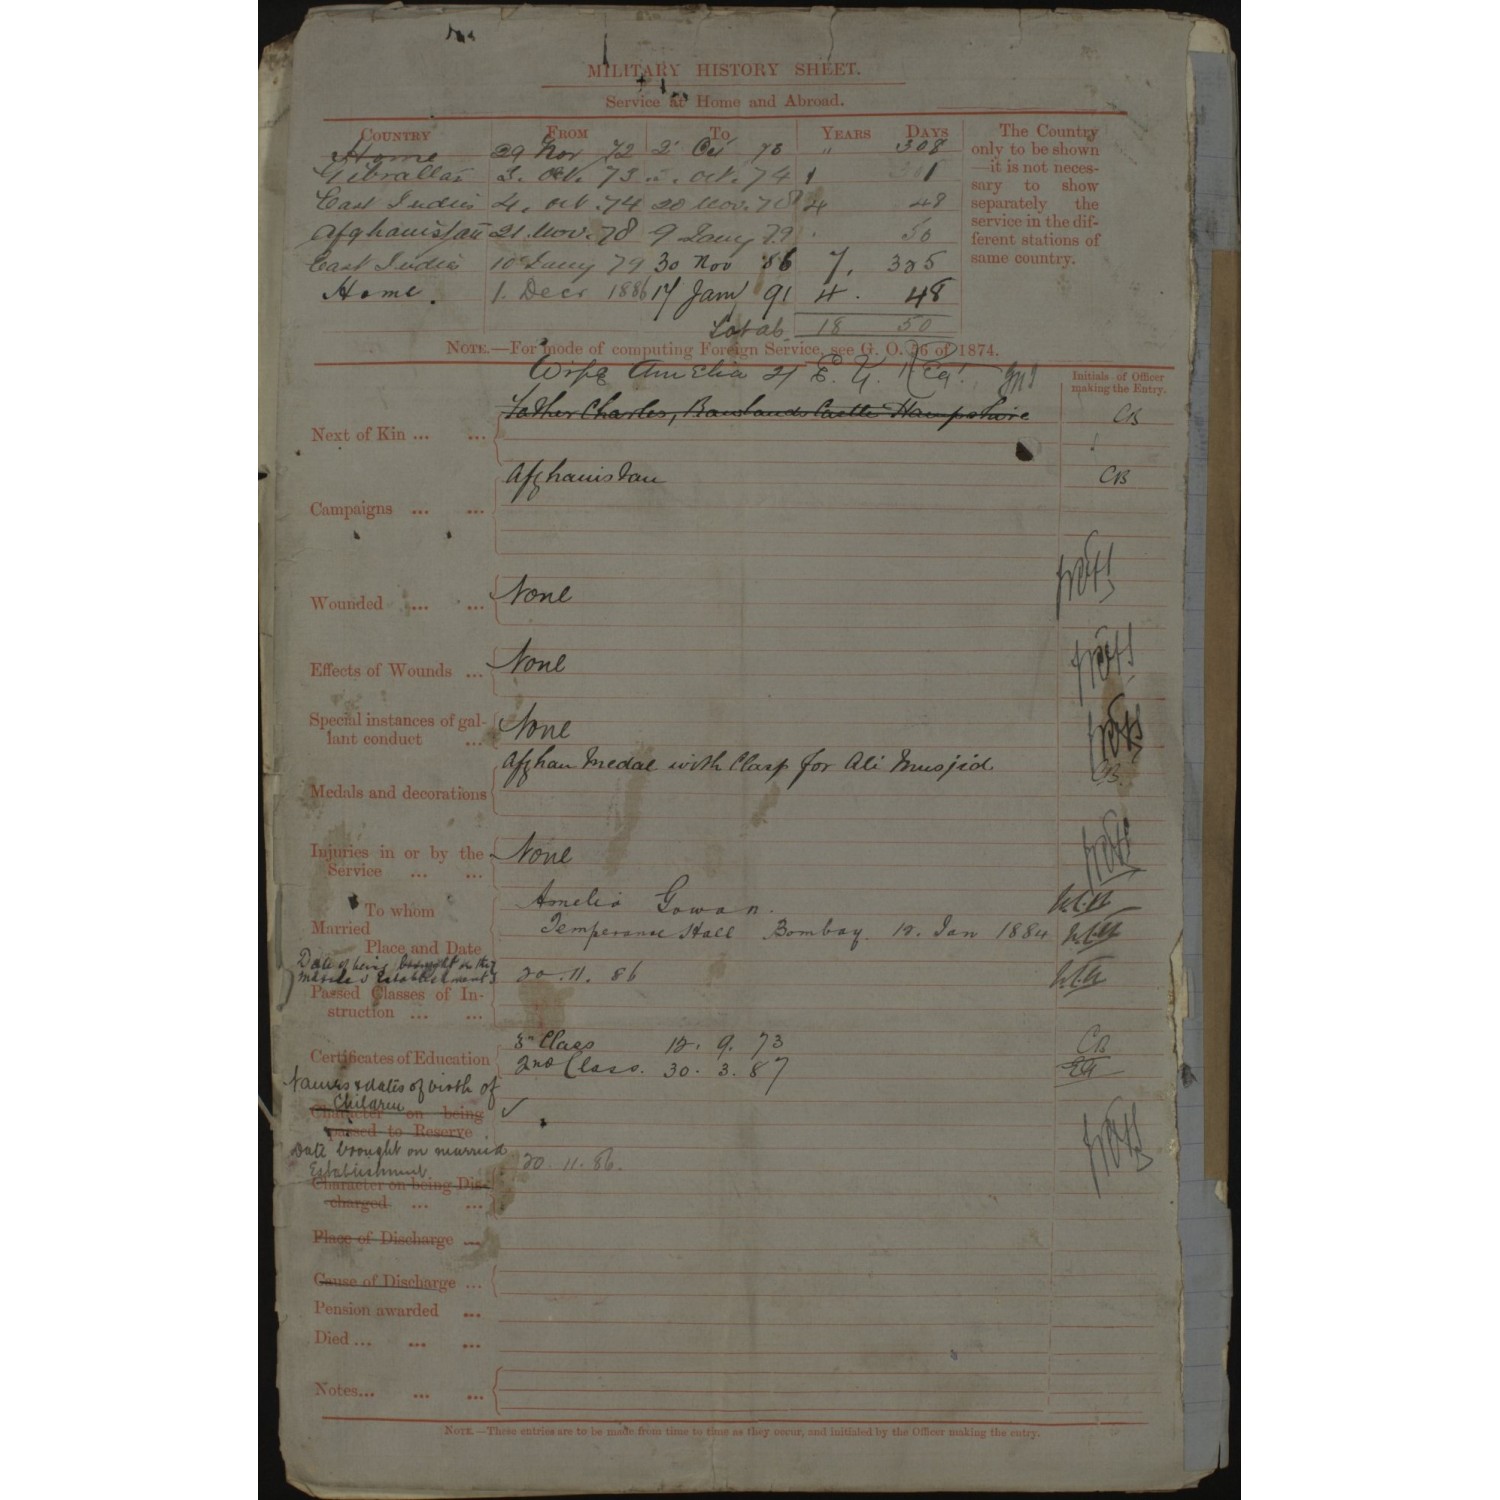 MILITARY HISTORY SHEET.
Service at Home and Abroad.
COUNTRY FROM TO YEARS DAYS
Home 29 Nov 72 2 Oct 73 " 308
Gibraltar 3. Oct. 73 3. Oct. 74 1 1
East Indies 4. Oct. 74 20 Nov. 78 4 48
Afghanistan 21. Nov. 78 9 Jany 79 . 50
East Indies 10 Jany 79 30 Nov 86 7. 325
Home. 1. Decr 1886 17 Jany 91 4. 48
Total 18 50
The Country
only to be shown
—it is not neces-
sary to show
separately the
service in the dif-
ferent stations of
same country.
NOTE.—For mode of computing Foreign Service, see G. O. 56 of 1874.
Wife Amelia
Initials of Officer
making the Entry.
Father Charles, Rowlands Castle Hampshire CB
Next of Kin ... ...
Afghanistan CB
Campaigns ... ...
Wounded ... ... None
Effects of Wounds ... None
Special instances of gal-
lant conduct ... None
Afghan Medal with Clasp for Ali Musjid CB
Medals and decorations
Injuries in or by the
Service ... ... None
To whom Amelia Gowan.
Married
Place and Date Temperance Hall Bombay. 12. Jan 1884
Date of being brought on the
Married Establishment 20. 11. 86
Passed Classes of In-
struction ... ...
3rd Class 12. 9. 73 CB
Certificates of Education
2nd Class. 30. 3. 87
Names & dates of birth of
Children
Character on being
passed to Reserve
Date brought on married
Establishment 20. 11. 86.
Character on being Dis-
charged ... ...
Place of Discharge ...
Cause of Discharge ...
Pension awarded ...
Died ... ... ...
Notes... ... ...
NOTE.—These entries are to be made from time to time as they occur, and initialed by the Officer making the entry.